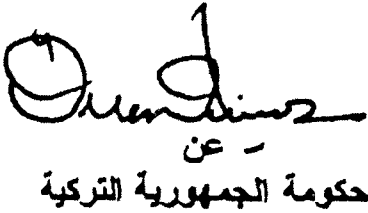 عن
حكومة الجمهورية التركية